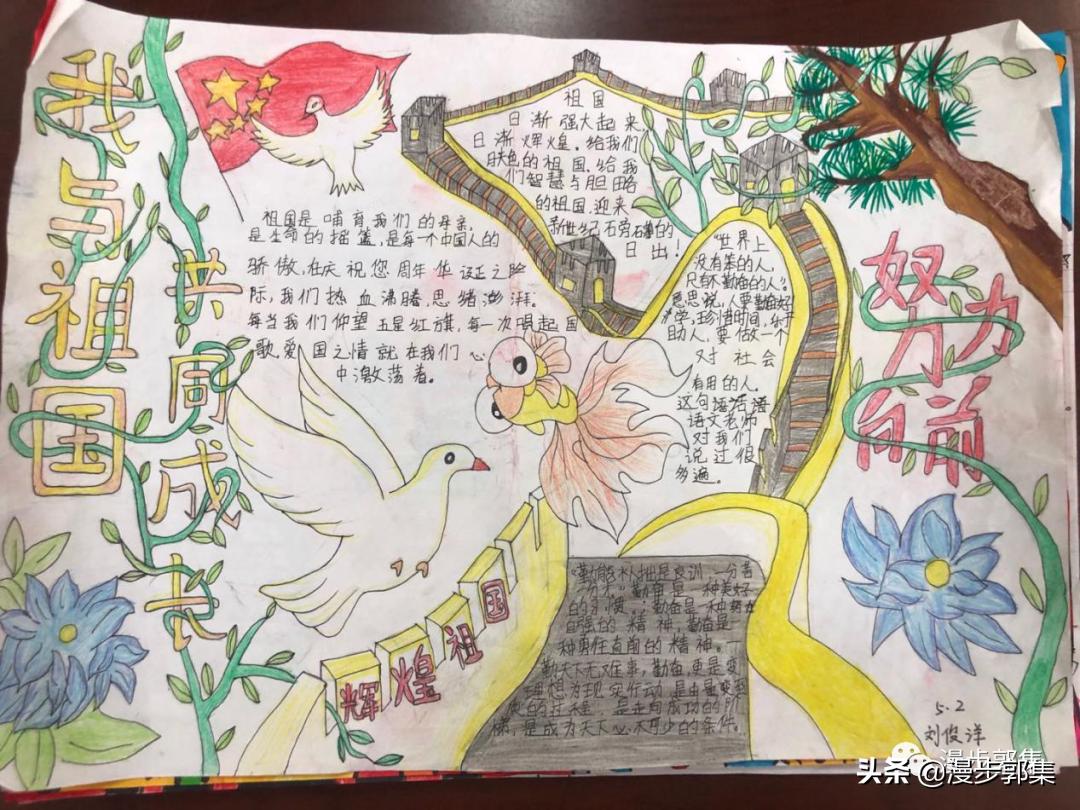 我与祖国
共同成长
祖国是哺育我们的母亲,
是生命的摇篮,是每一个中国人的
骄傲,在庆祝您周年华诞正之际
际,我们热血沸腾,思绪澎湃。
每当我们仰望五星红旗,每一次唱起国
歌,爱国之情就在我们心
中激荡着。
祖国
日渐强大起来,
日渐辉煌。给我们
肤色的祖国,给我
们智慧与胆略
的祖国,迎来
新世纪
日出!
“世界上
没有笨的人,
只有不勤奋的人”。
意思说,人要勤奋好
学,珍惜时间,乐于
助人,要做一个
对社会
有用的人。
这句话
语文老师
对我们
说过很
多遍。
努力
向前
辉煌祖国
“勤能补拙是良训,一分辛
勤奋是一种美好
的习惯,勤奋是一种
自强的精神,勤奋是一
种勇往直前的精神。
勤天下无难事,勤奋,更是变
理想为现实行动,是由量变到
质变的过程,是走向成功的阶
梯,是成为天下必不可少的条件。
5.2
刘俊洋
漫步郭集
头条@漫步郭集